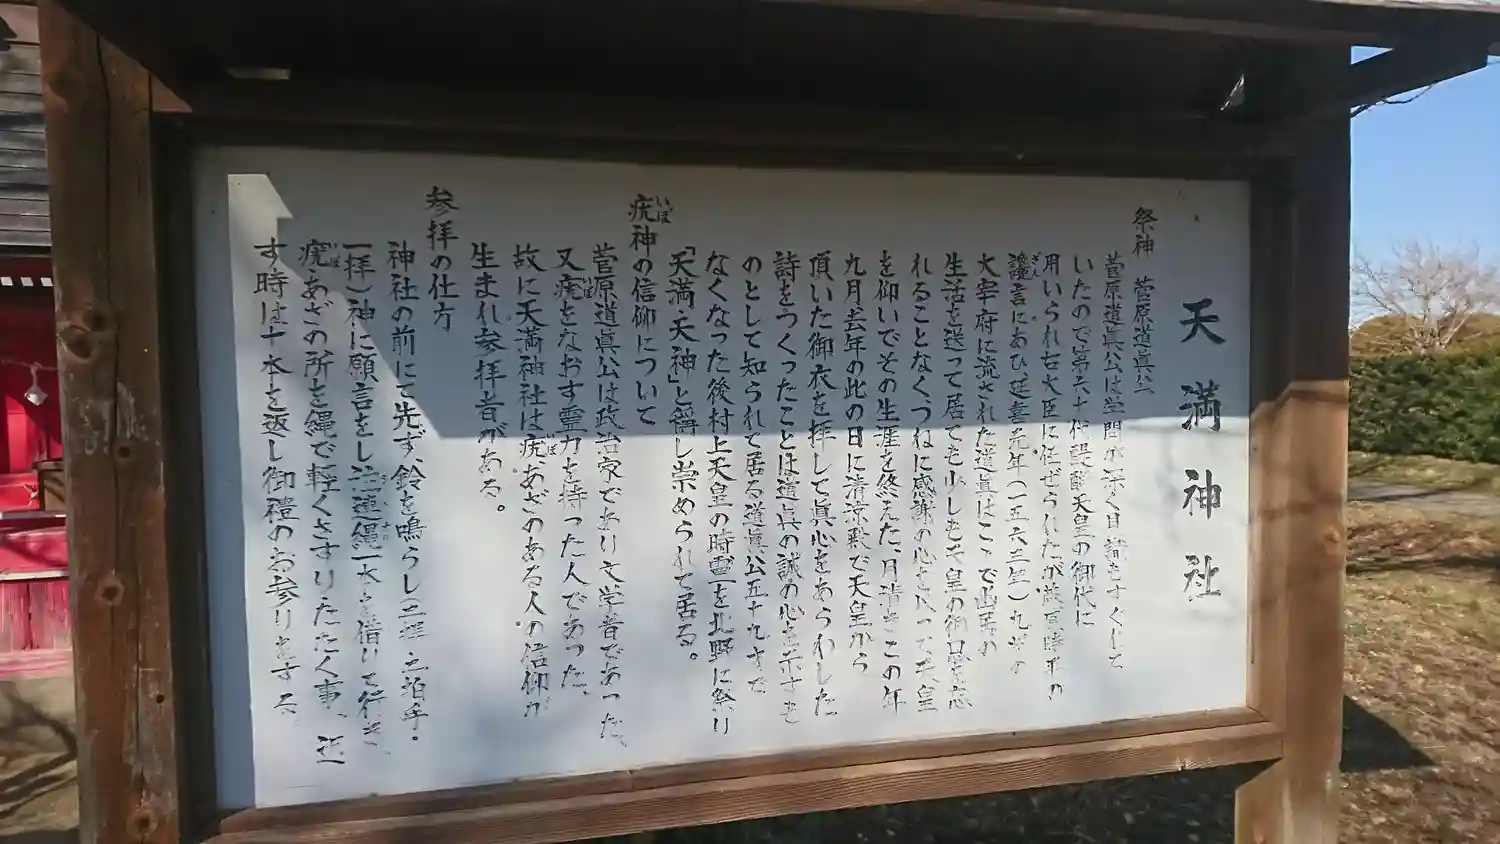 天満神社
祭神 菅原道眞公
菅原道眞公は学問が深く且詩もすぐれて
いたので第六十代醍醐天皇の御代に
用いられ右大臣に任ぜられたが藤原時平の
讒言にあひ延喜元年(一五六一年)九州の
ぎん
大宰府に流された道眞はこゝで幽居の
生活を送って居ても少しも天皇の御恩を忘
れることなくつねに感謝の心をもって天皇
を仰いでその生涯を終えた、月清きこの年
九月去年の此の日に清涼殿で天皇から
頂いた御衣を拝して眞心をあらわした
詩をつくったことは道眞の誠の心を示すも
のとして知られて居る道眞公五十九才で
なくなった後村上天皇の時霊を北野に祭り
「天満天神」と稱し崇められて居る。
疣神の信仰について
いぼ
菅原道眞公は政治家であり文学者であった、
又疣をなおす霊力を持った人であった、
いぼ
故に天満神社は疣あざのある人の信仰が
いぼ
生まれ参拝者がある。
参拝の仕方
神社の前にて先ず、鈴を鳴らし(二拝二拍手・
一拝)神に願言をし注連縄一本を借りて行き、
シメナワ
疣あざの所を縄で軽くさすりたたく事、返
いぼ
す時は十本を返し御禮のお参りをする